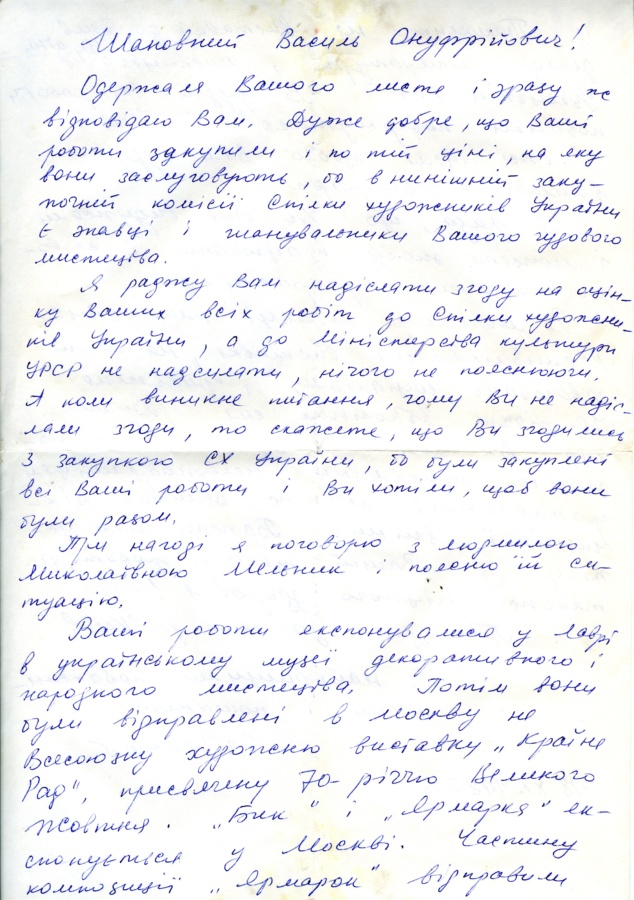 Шановний Василь Онуфрійович!
Одержала Вашого листа і зразу ж
відповідаю Вам. Дуже добре, що Ваші
роботи закупили і по тій ціні, на яку
вони заслуговують, бо в нинішній заку-
почній комісії Спілки художників України
є знавці і шанувальники Вашого чудового
мистецтва.
Я раджу Вам надіслати згоду на оцін-
ку Ваших всіх робіт до Спілки художни-
ків України, а до Міністерства культури
УРСР не надсилати, нічого не пояснюючи.
А коли виникне питання, чому Ви не надіс-
лали згоди, то скажете, що Ви згодились
з закупкою СХ України, бо були закуплені
всі Ваші роботи і Ви хотіли, щоб вони
були разом.
При нагоді я поговорю з Людмилою
Миколаївною Мельник і поясню їй си-
туацію.
Ваші роботи експонувалися у Лаврі
в українському музеї декоративного і
народного мистецтва. Потім вони
були відправлені в Москву на
Всесоюзну художню виставку „Країна
Рад", присвячену 70-річчю Великого
Жовтня. „Бик" і „Ярмарка" ек-
спонується у Москві. Частину
композиції „Ярмарок" відправили